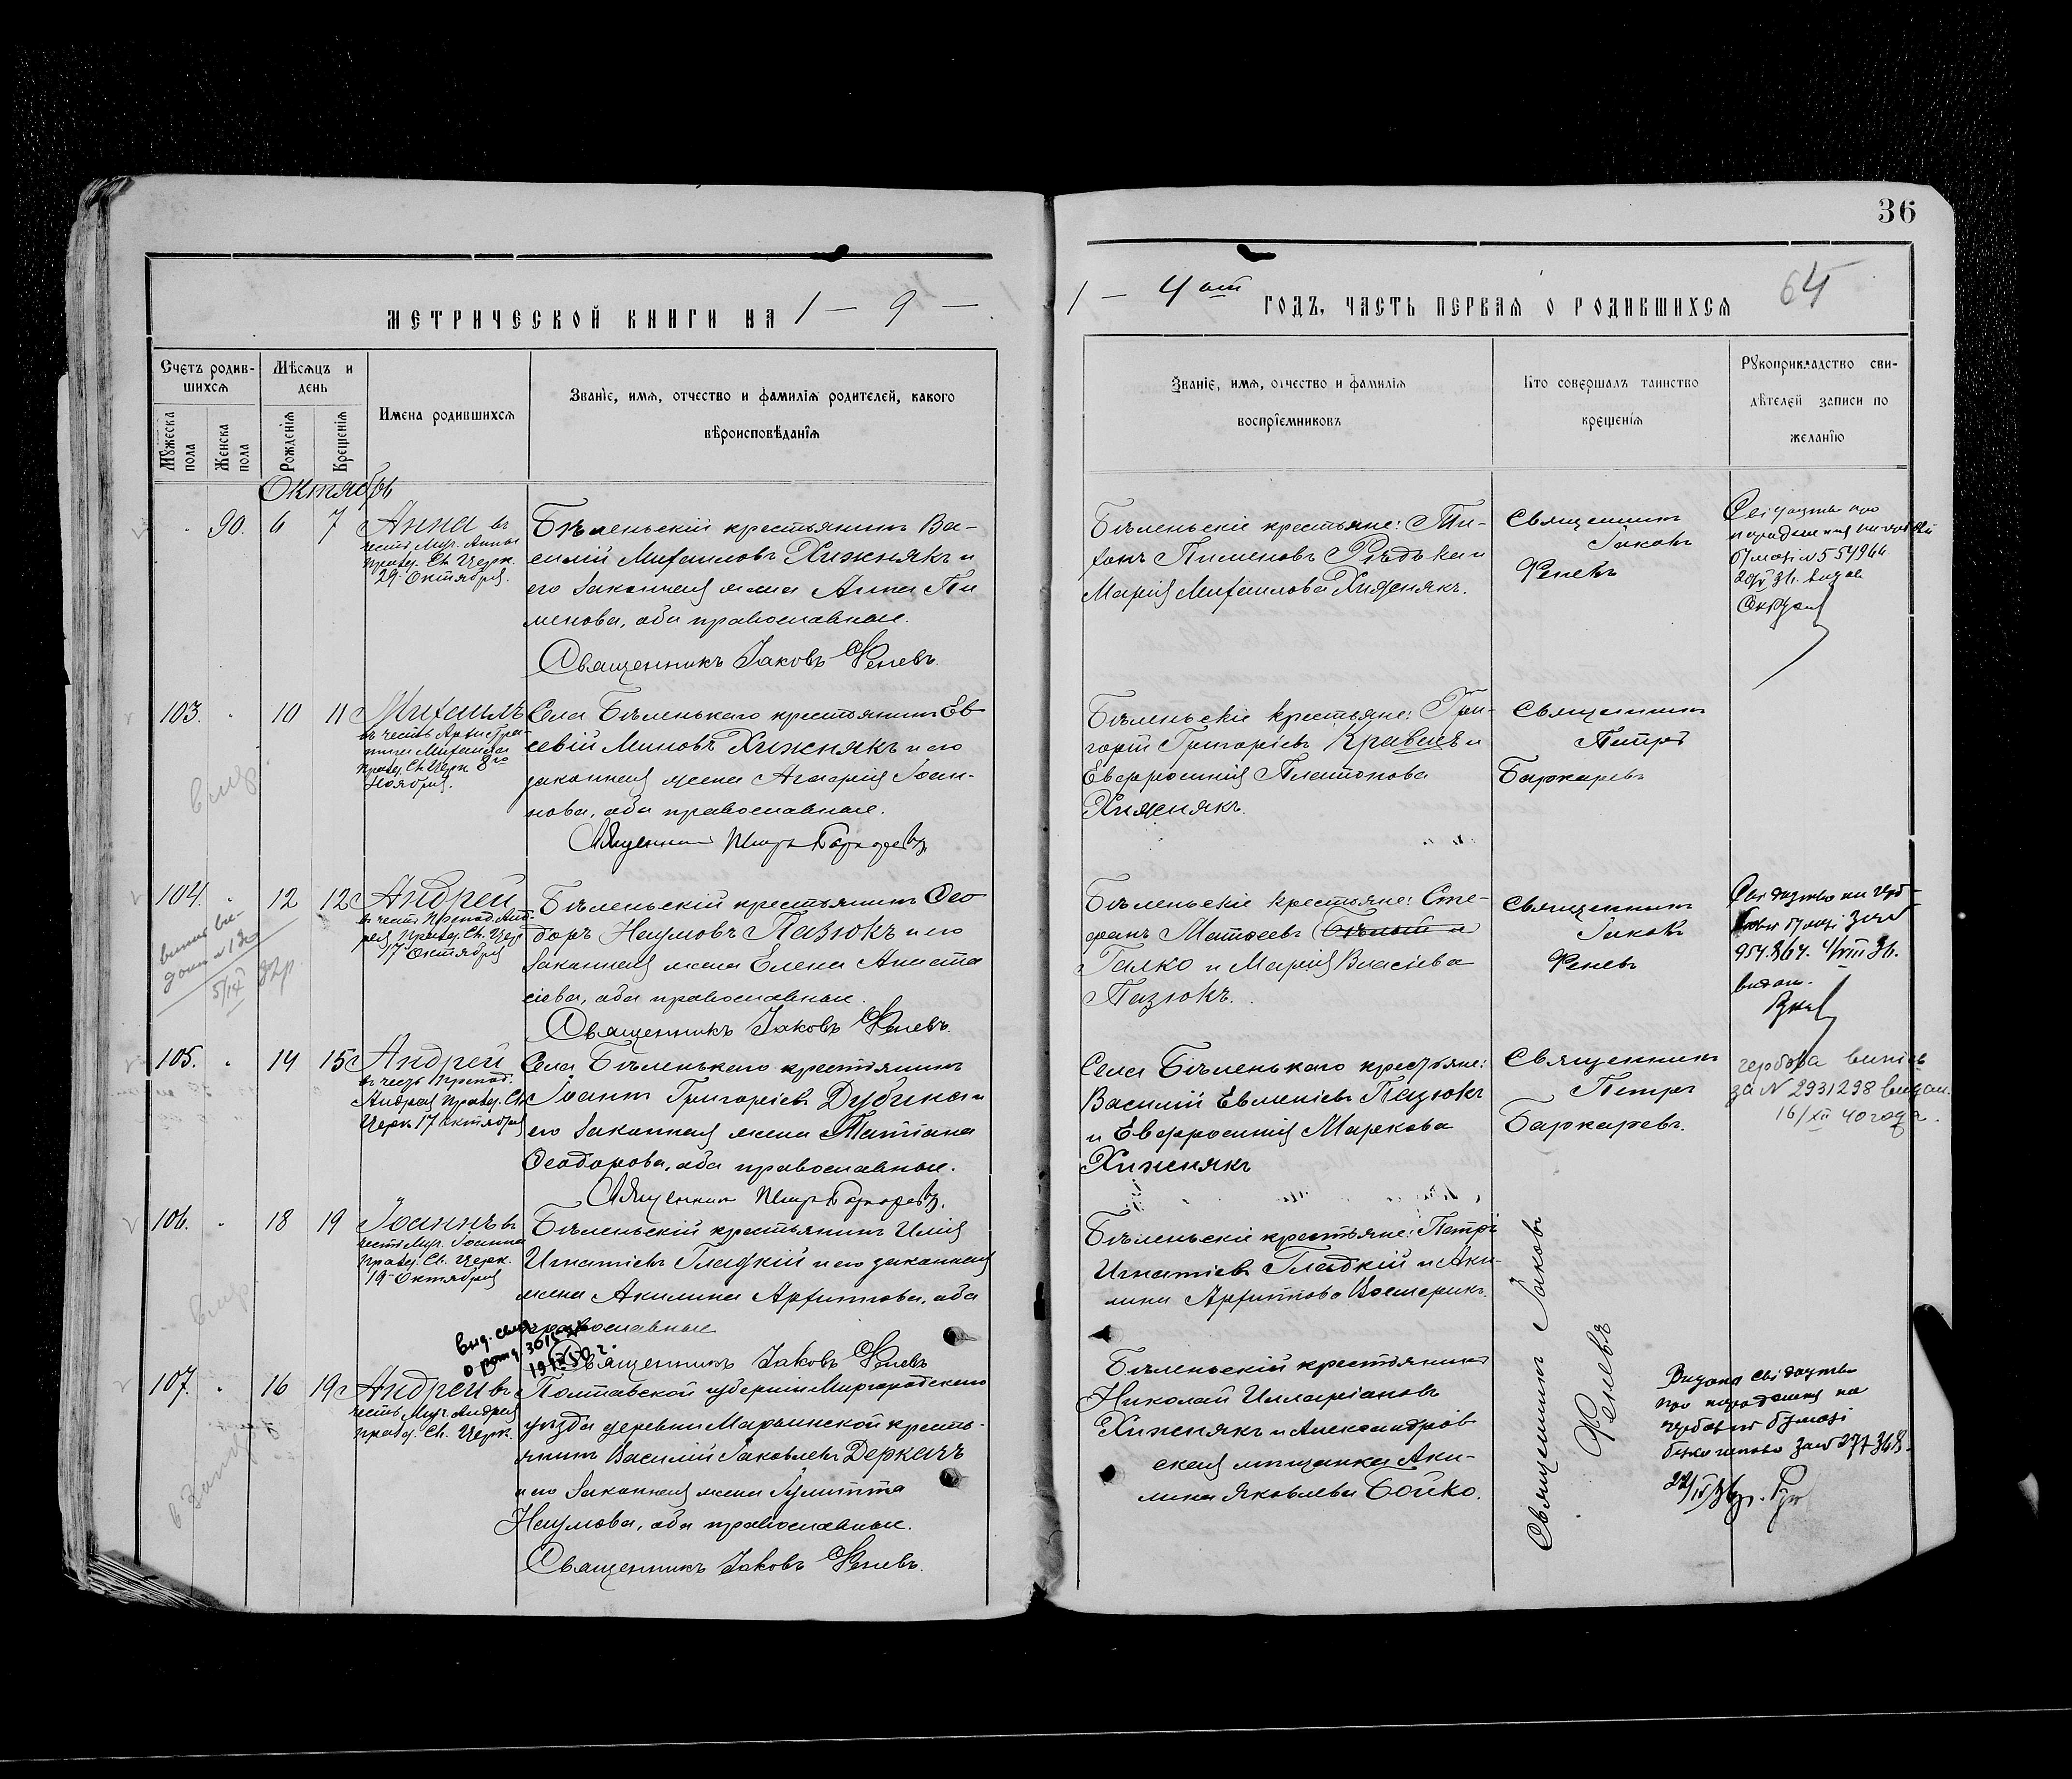 36
МЕТРИЧЕСКОЙ КНИГИ НА 1 — 9 —
1 — 4 ый ГОДЪ, ЧАСТЬ ПЕРВАЯ О РОДИВШИХСЯ
64
Счетъ родив-
шихся
Мѣсяцъ и
день
Имена родившихся
Званіе, имя, отчество и фамилія родителей, какого
вѣроисповѣданія
Мужеска
пола
Женска
пола
Рожденія
Крещенія
Званіе, имя, отчество и фамилія
воспріемниковъ
Кто совершалъ таинство
крещенія
Рукоприкладство сви-
дѣтелей записи по
желанію
Октябрь
90. 6 7 Анна въ
честь Муч. Анны
празд. Св. Церк.
29. Октября.
Бѣленькій крестьянинъ Ва-
силій Михаиловъ Хижнякъ и
его законная жена Анна Пи
менова, оба православные.
Священникъ Іаковъ Феневъ.
Бѣленьскіе крестьяне: Ти-
хонъ Пименовъ Рѣдька и
Марія Михаилова Хижнякъ.
Священникъ
Іаковъ
Феневъ
103. 10 11 Михаилъ
въ честь Архистра-
тига Михаила
празд. Св. Церк 8го
Ноября.
Села Бѣленькаго крестьянинъ Ев
севій Миновъ Хижнякъ и его
законная жена Агафія Іоан-
нова, оба православные.
Священникъ Петръ Баржаревъ
Бѣленьскіе крестьяне: Гри-
горій Григоріевъ Кравецъ и
Евфросинія Платонова
Хижнякъ.
Священникъ
Петръ
Баржаревъ
104. 12 12 Андрей
въ честь Препод. Анд-
рея, празд. Св. Церк
17 Октября
Бѣленьскій крестьянинъ Ѳео
доръ Наумовъ Пазюкъ и его
законная жена Елена Анаста
сіева, оба православные.
Священникъ Іаковъ Феневъ.
Бѣленьскіе крестьяне: Сте-
фанъ Матѳеевъ
Галко и Марія Власіева
Пазюкъ.
Священникъ
Іаковъ
Феневъ
5/IV
105. 14 15 Андрей
въ честь Препод.
Андрея празд. Св.
Церк 17 октября
Села Бѣленькаго крестьянинъ
Іоаннъ Григоріевъ Дубина и
его законная жена Татіана
Ѳеодорова, оба православные.
Священникъ Петръ Баржаревъ.
Села Бѣленькаго крестьяне:
Василій Евменіевъ Пазюкъ
и Евфросинія Маркова
Хижнякъ
Священникъ
Петръ
Баржаревъ.
гербова випись
за N 2931298 видан.
16/XII 40 года.
106. 18 19 Іоаннъ въ
честь Муч. Іоанна
празд. Св. Церк.
19 Октября
Бѣленьскій крестьянинъ Илія
Игнатіевъ Гладкій и его законная
жена Акилина Архиппова, оба
православные
Священникъ Іаковъ Феневъ
Бѣленьскіе крестьяне: Петръ
Игнатіевъ Гладкій и Аки-
лина Архиппова
Священникъ Іаковъ
Феневъ
107. 16 19 Андрей въ
честь Муч. Андрея
празд. Св. Церк.
Полтавской губерніи Миргородскаго
уѣзда деревни Марьинской кресть-
янинъ Василій Іаковлевъ Деркачъ
и его законная жена Іулитта
Наумова, оба православные.
Священникъ Іаковъ Феневъ.
Бѣленьскій крестьянинъ
Николай Илларіоновъ
Хижнякъ и Александров
ская мѣщанка Аки-
лина Яковлева Бойко.
Видано свідоцтво
про народження на
гербовій бумазі